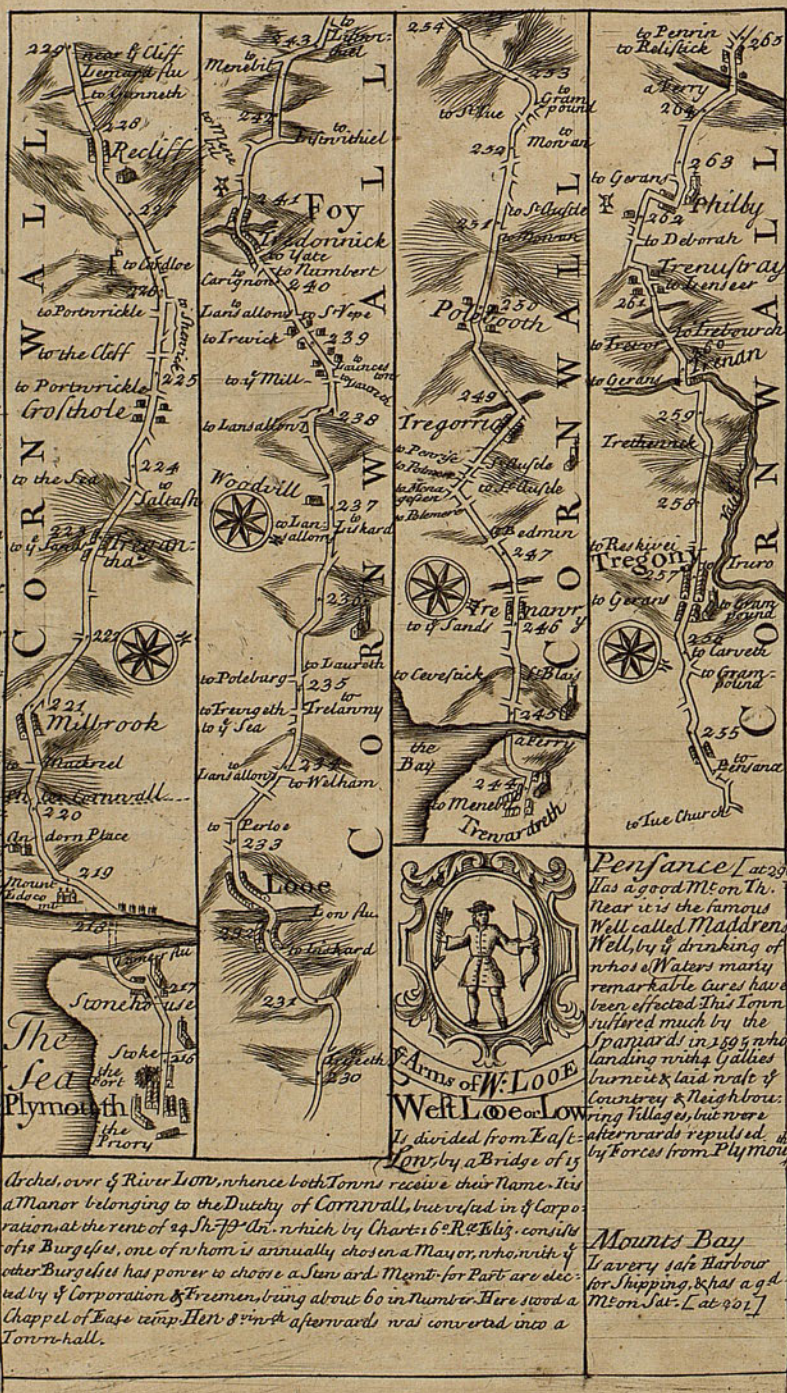 CORNWALL
229
near ẏ Cliff
Lemard flu
to Gunneth
228
Recliff
227
to Cordloe
226
to Portwrickle
to the Cleff
225
to Portwrickle
Crosthole
224
to the Sea
to Saltash
223
to ẏ Sands
Tregan-
tha
222
221
Milbrook
to Mackrel
Ent. into Cornwall
220
Andorn Place
219
Mount
Edgcom
218
Tamer flu
217
Stonehouse
Stoke
216
The Sea
the Fort
Plymouth
the Priory
CORNWALL
243
to Listwi-
thiel
to Menebit
242
to Listwithiel
to Mene
bil
241
Foy
Tredonnick
to Yate
to Numbert
Carignon
240
to Lansallon
to S.t Vepe
to Trewick
239
to Launces
ton
to Laund
to ẏ Mill
238
to Lansallon
Woodvill
237
to Lan-
sallon
to Liskard
236
to Laureth
to Poleburg
235
to Trelawny
to Trevgeth
to ẏ Sea
234
to Lansallon
to Welham
to Perloe
233
Looe
Low flu.
232
to Liskard
231
230
CORNWALL
254
253
to Gram
pound
to St Tue
to Morvan
252
to St Austle
251
to Morvan
250
Polegooth
249
Tregorrig
to Penrise
St Austle
to Polmere
to Mona
gessen
to St Austle
to Polemere
to Bedmin
247
Tremanvry
to ẏ Sands
246
to Cevestick
St Blais
245
the
Bay
a Ferry
244
to Menebil
Trewardreth
CORNWALL
to Penrin
to Relistick
265
a Ferry
264
263
to Gerans
Philby
262
to Deborah
Trenustray
to Trenseer
261
to Trebourch
to Trevor
260
Trenan
to Gerans
259
Trethennick
258
Vale flu
to Reskivei
Tregony
257
to Truro
to Gerans
to Gram
pound
256
to Carveth
to Gram-
pound
255
to Pensance
to Tue Church
ẏ Arms of W. LOOE
West Looe or Low
Is divided from East-
Low, by a Bridge of 15
Arches, over ẏ River Low, whence both Towns receive their Name. It is
a Manor belonging to the Dutchy of Cornwall, but vested in ẏ Corpo-
ration, at the rent of 24 Sh. P An. which by Chart: 16o Rae Eliz. consists
of 12 Burgesses, one of whom is annually chosen a Mayor, who, with ẏ
other Burgesses has power to choose a Steward. Memt. for Part are elec-
ted by ẏ Corporation & Freemen, being about 60 in Number. Here stood a
Chappel of Ease temp. Hen 8 wch afterwards was converted into a
Town-hall.
Pensance [at 29
Has a good Mt on Th.
Near it is the famous
Well called Maddrens
Well, by ẏ drinking of
whose Waters many
remarkable Cures have
been effected This Town
suffered much by the
Spaniards in 1595 who
landing with 4 Gallies
burnt it & laid wast ẏ
Countrey & Neighbou-
ring Villages, but were
afterwards repulsed
by Forces from Plymouth
Mounts Bay
Is a very safe Harbour
for Shipping, & has a gd
Mt on Sat. [at 201]